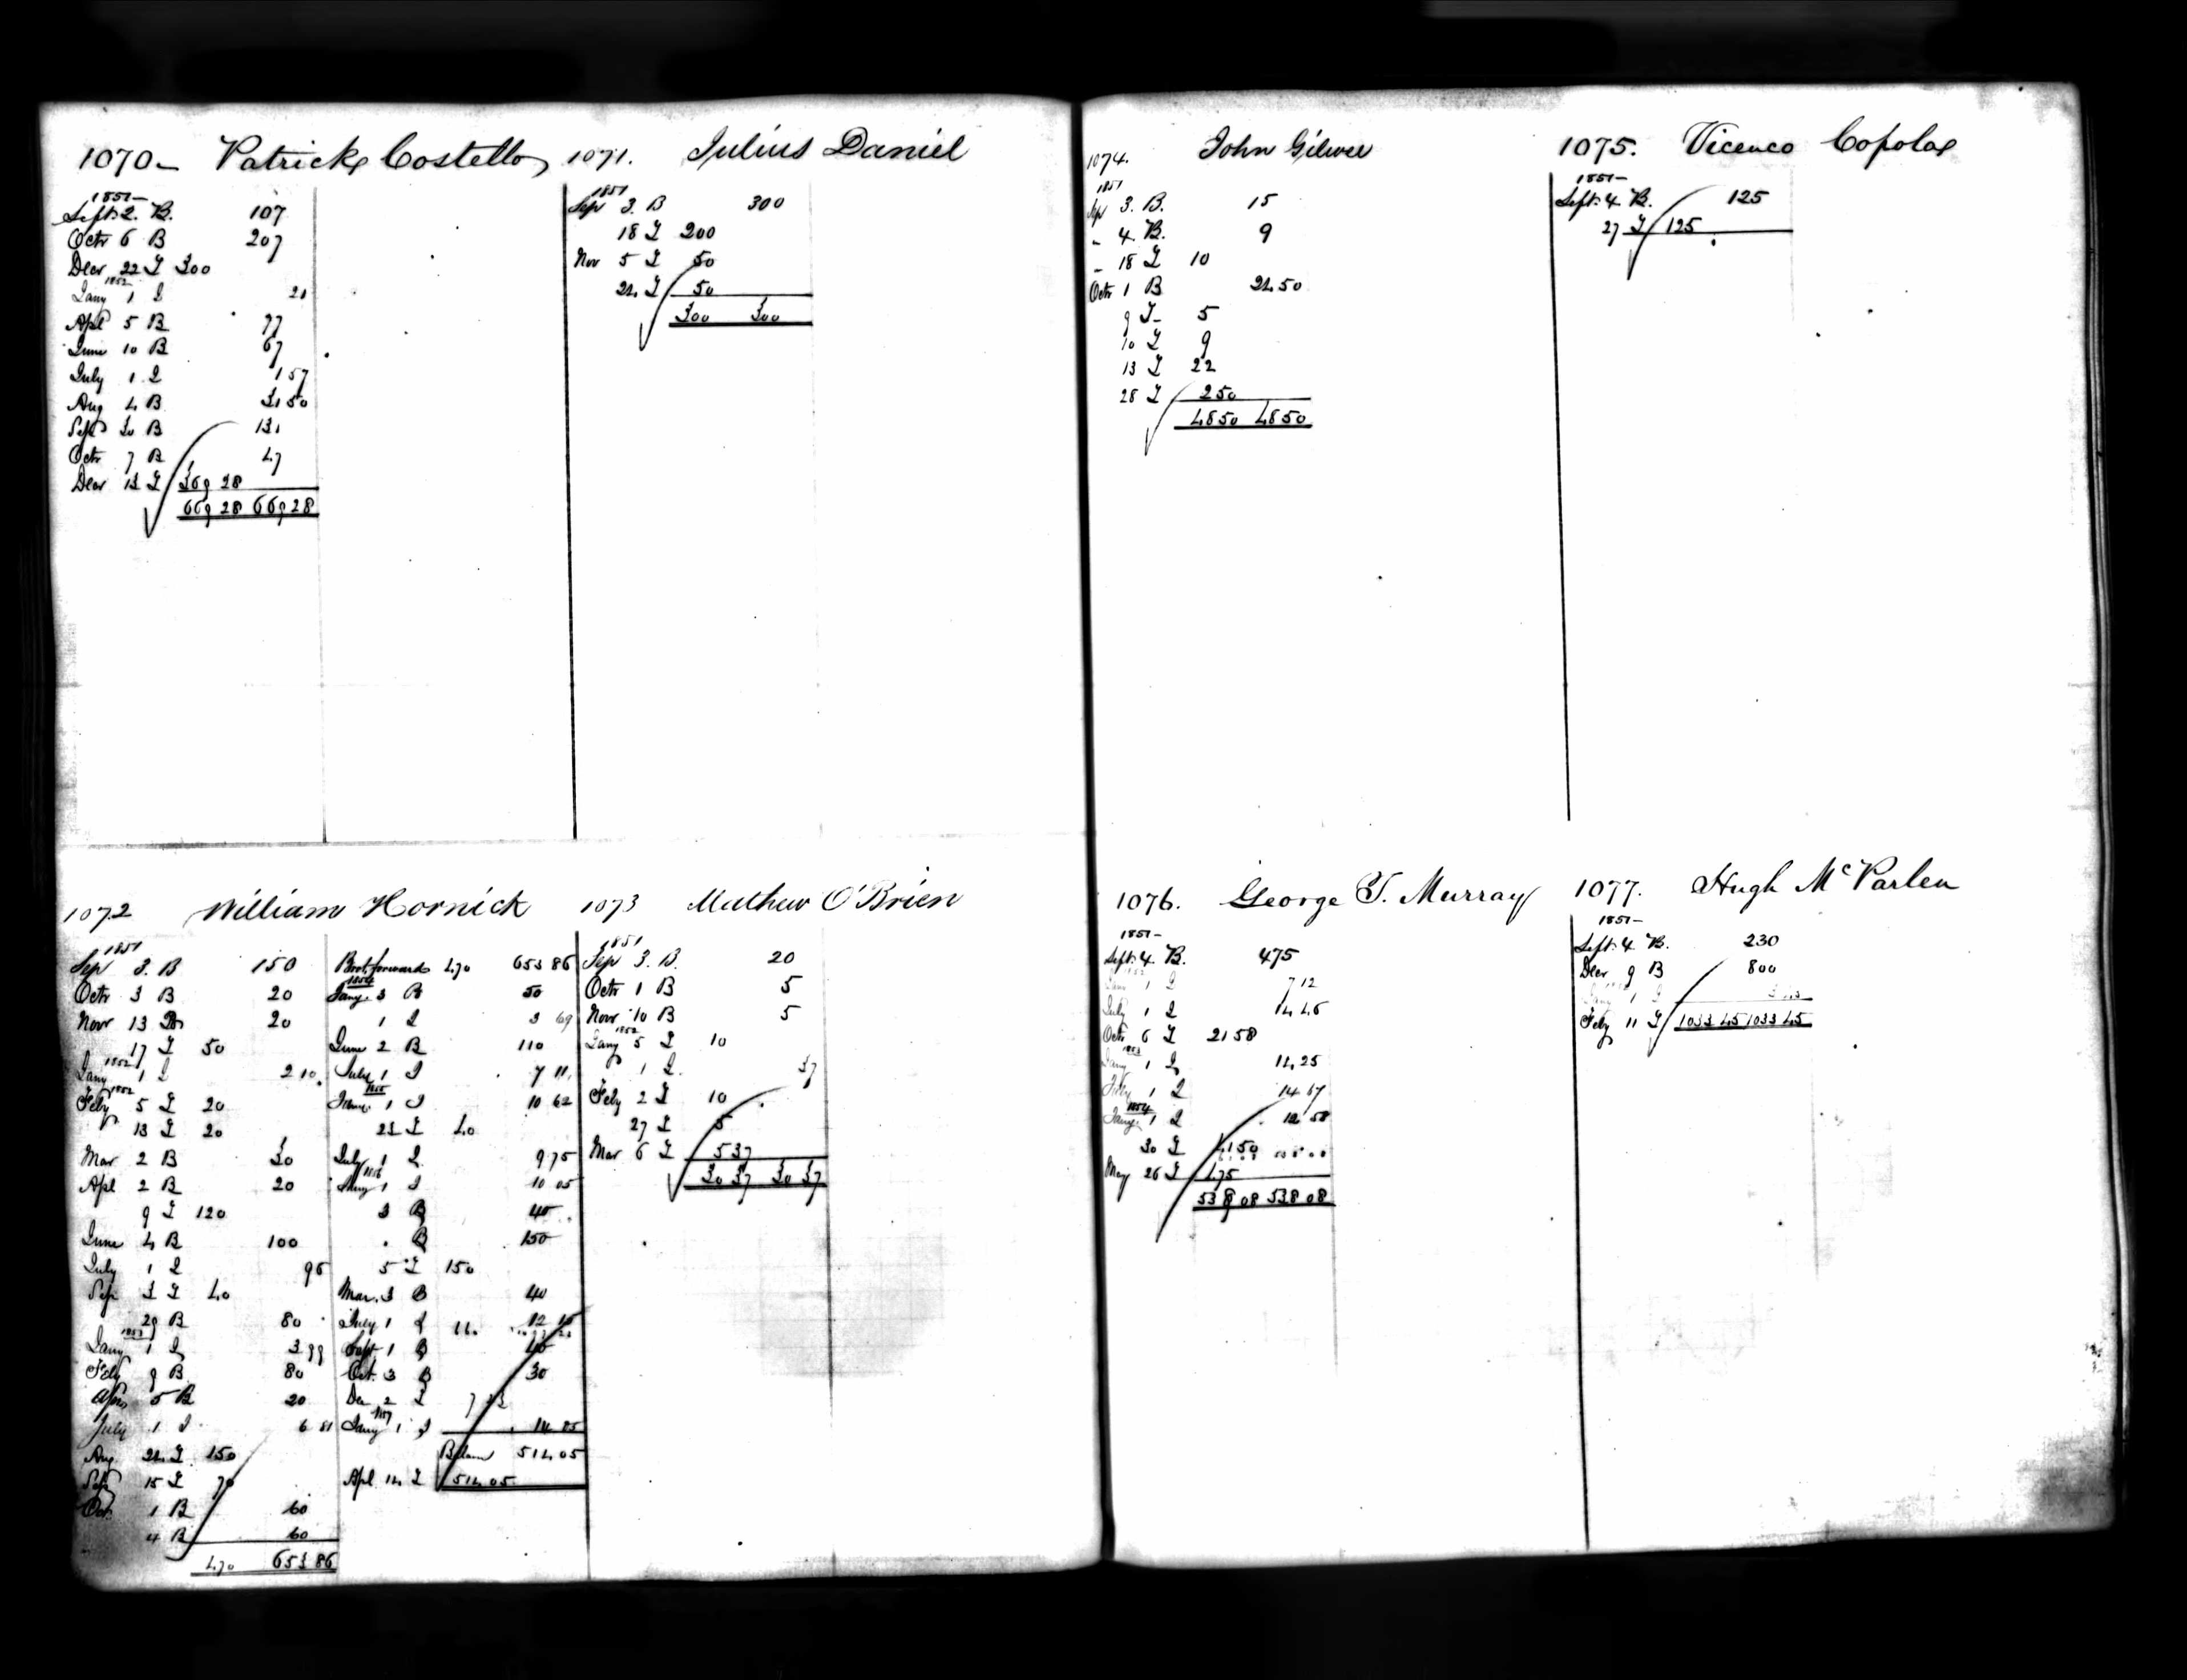 1070- Patrick Costello
1851-
Sept. 2. B. 107
Octr 6 B 207
Decr 22 I 300
1852
Jany 1 I 21
Apl 5 B 77
June 10 B 67
July 1 I 157
Aug 4 B 3150
Sep 30 B 131
Octr 7 B 47
Decr 13 I 369 28
669 28 669 28
1071. Julius Daniel
1851
Sep 3. B 300
18 I 200
Nov 5 I 50
24 I 50
300 300
1072 William Hornick
1851
Sep 3. B 150
Octr 3 B 20
Novr 13 B 20
17 I 50
Jany 1852 1 I 2 10
Feby 1852 5 I 20
13 I 20
Mar 2 B 30
Apl 2 B 20
9 I 120
June 4 B 100
July 1 I 96
Sep 3 I 40
29 B 80
1853
Jany 1 I 3 99
Feby 9 B 80
Apr 5 B 20
July 1 I 6 81
Aug 24 I 150
Sep 15 I 70
Oct. 1 B 60
4 B 60
470 653 86
Brot. forward 470 653 86
1854
Jany. 3 B 50
1 I 3 69
June 2 B 110
July 1 I 7 11
1855
Jany. 1 I 10 62
23 I 40
July 1 I 9 75
1856
Jany 1 I 10 05
3 B 40
. B 150
5 I 150
Mar. 3 B 40
July 1 I 12
Sept 1 B 40
Oct. 3 B 30
Dec 2 I
1857
Jany 1 I 14 85
Balanc 514 05
Apl 14 I 514 05
1073 Mathew O'Brien
1851
Sep 3. B. 20
Octr 1 B 5
Novr 10 B 5
1852
Jany 5 I 10
1 I 37
Feby 2 I 10
27 I 5
Mar 6 I 5 37
30 37 30 37
1074. John Gilwee
1851
Sep 3. B. 15
" 4. B. 9
" 18 I 10
Octr 1 B 24 50
9 I 5
10 I 9
13 I 22
28 I 2 50
48 50 48 50
1075. Vicenco Copola
1851-
Sept. 4. B. 125
27 I 125
1076. George T. Murray
1851-
Sept. 4. B. 475
1 I 7 12
July 1 I 14 46
Octr 6 I 21 58
1853
Jany 1 I 14 25
July 1 I 14 67
1854
Jany. 1 I 12 58
30 I 41 50
May 26 I 475
538 08 538 08
1077. Hugh McParlen
1851-
Sept. 4. B. 230
Decr 9 B 800
1 I
Feby 11 I 1033 45 1033 45